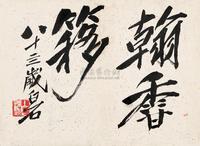 翰香
簃
八十三歲白石